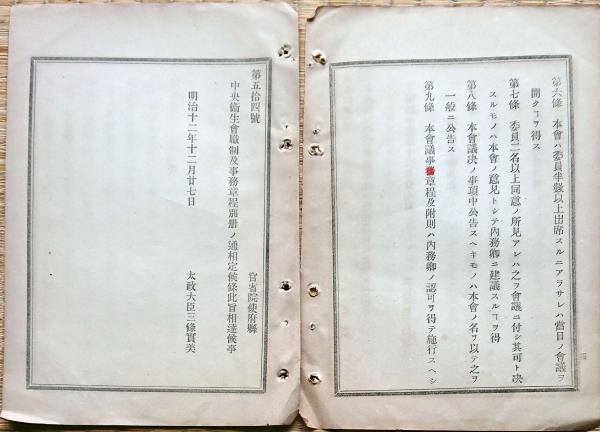 第六條 本會ハ委員半數以上出席スルニアラサレハ當日ノ會議ヲ
開クヿヲ得ス
第七條 委員二名以上同意ノ所見アレハ之ヲ會議ニ付シ其可ト决
スルモノハ本會ノ意見トシテ內務卿ニ建議スルヿヲ得
第八條 本會議决ノ事項中公告スヘキモノハ本會ノ名ヲ以テ之ヲ
一般ニ公告ス
第九條 本會議事章程及附則ハ內務卿ノ認可ヲ得テ施行スヘシ
第五拾四號
官省院使府縣
中央衞生會職制及事務章程別册ノ通相定候條此旨相達候事
明治十二年十二月廿七日
太政大臣三條實美